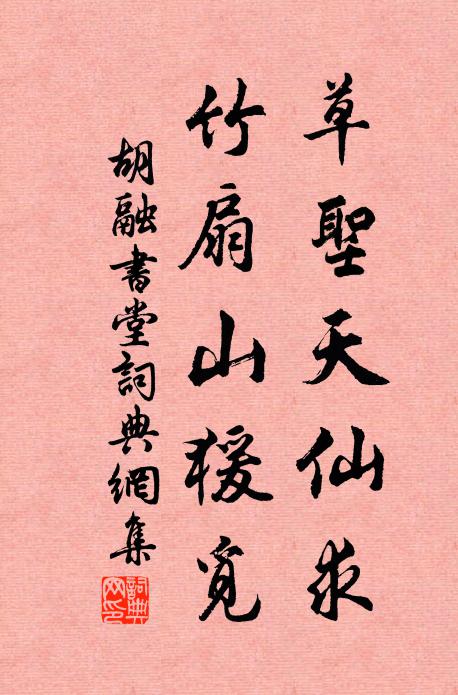 草聖天仙求
竹扇山猨覓
胡融書堂詞典網集
詞典网印